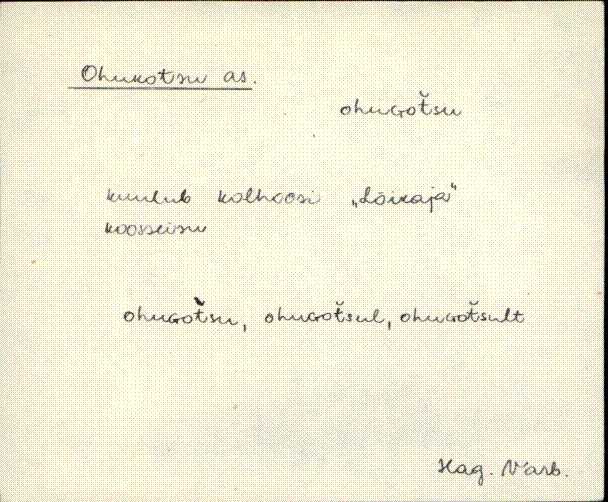 Ohukotsu as.
ohuGotšu
kuulub kolhoosi „Lõikaja"
koosseisu
ohuGotšu, ohuGotšul, ohuGotšult
Hag. Varb.